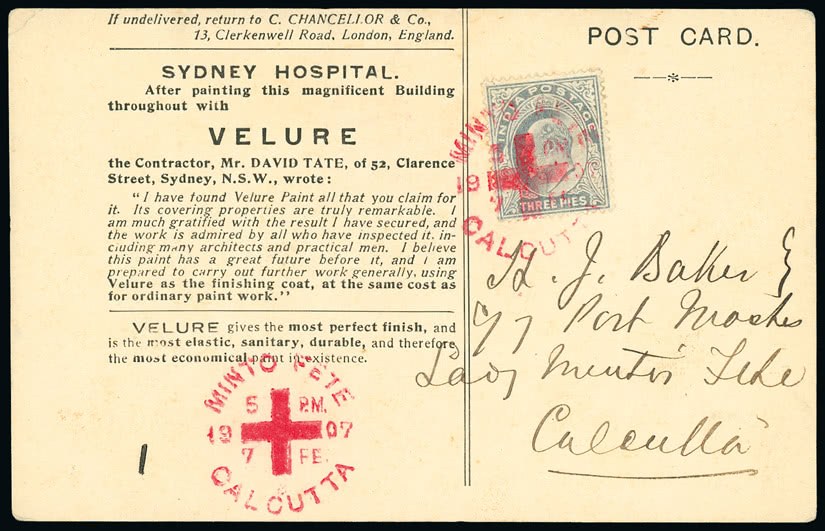 If undelivered, return to C. CHANCELLOR & Co.,
13, Clerkenwell Road, London, England.
SYDNEY HOSPITAL.
After painting this magnificent Building
throughout with
VELURE
the Contractor, Mr. DAVID TATE, of 52, Clarence
Street, Sydney, N.S.W., wrote:
"I have found Velure Paint all that you claim for
it. Its covering properties are truly remarkable. I
am much gratified with the result I have secured, and
the work is admired by all who have inspected it, in-
cluding many architects and practical men. I believe
this paint has a great future before it, and I am
prepared to carry out further work generally, using
Velure as the finishing coat, at the same cost as
for ordinary paint work."
VELURE gives the most perfect finish, and
is the most elastic, sanitary, durable, and therefore
the most economical paint in existence.
MINTO FETE
5 P.M.
19 07
7 FE.
CALCUTTA
POST CARD.
INDIA POSTAGE
THREE PIES
MINTO
19
7
CALCUTTA
H. J. Baker
Port Master
Lady Minto's Fete
Calcutta